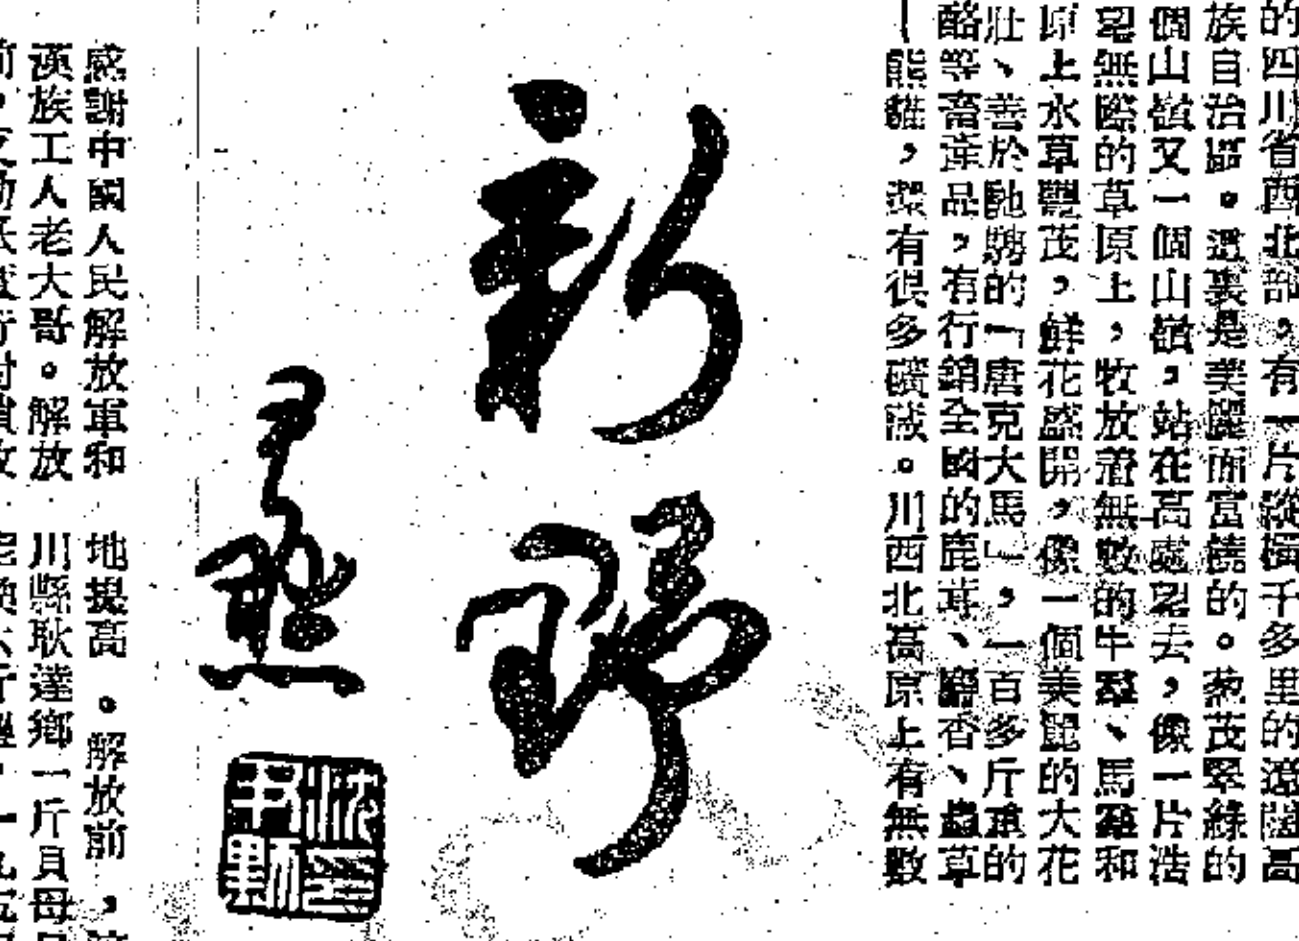 的四川省西北部，有一片縱橫千多里的遼闊高
族自治區。這裏是美麗而富饒的。葱茂翠綠的
個山嶺又一個山嶺，站在高處望去，像一片浩
望無際的草原上，牧放着無數的牛羣、馬羣和
原上水草豐茂，鮮花盛開，像一個美麗的大花
壯、善於馳騁的「唐克大馬」，一百多斤重的
酪等畜產品，有行銷全國的鹿茸、麝香、蟲草
熊貓，還有很多礦藏。川西北高原上有無數
新野
尹默
感謝中國人民解放軍和
漢族工人老大哥。解放
地提高。解放前，
川縣耿達鄉一斤貝母